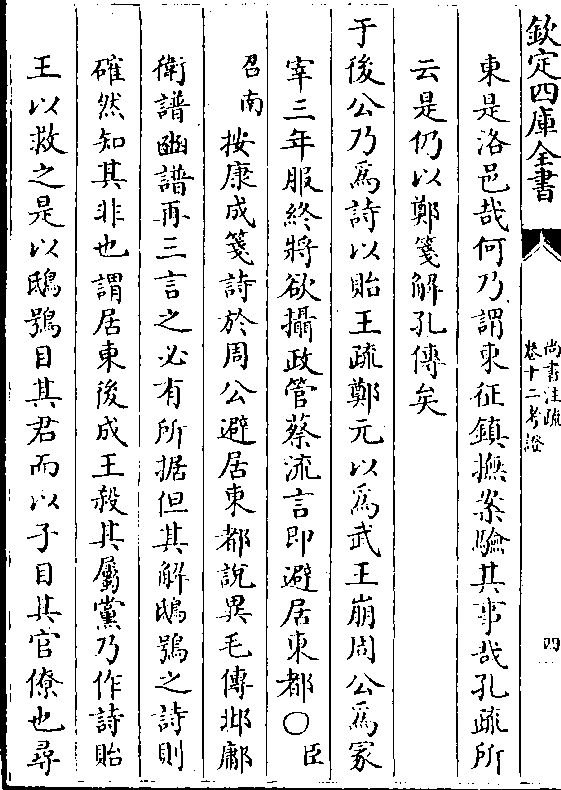 欽定四庫全書
尚書注疏
卷十二考證
四
東是洛邑哉何乃謂東征鎮撫案驗其事哉孔疏所
云是仍以鄭箋解孔傳矣
于後公乃為詩以貽王疏鄭元以為武王崩周公為冢
宰三年服終將欲攝政管蔡流言即避居東都〇臣
召南按康成箋詩於周公避居東都說異毛傳邶鄘
衛譜豳譜再三言之必有所据但其解鴟鴞之詩則
確然知其非也謂居東後成王殺其屬黨乃作詩貽
王以救之是以鴟鴞目其君而以子目其官僚也尋